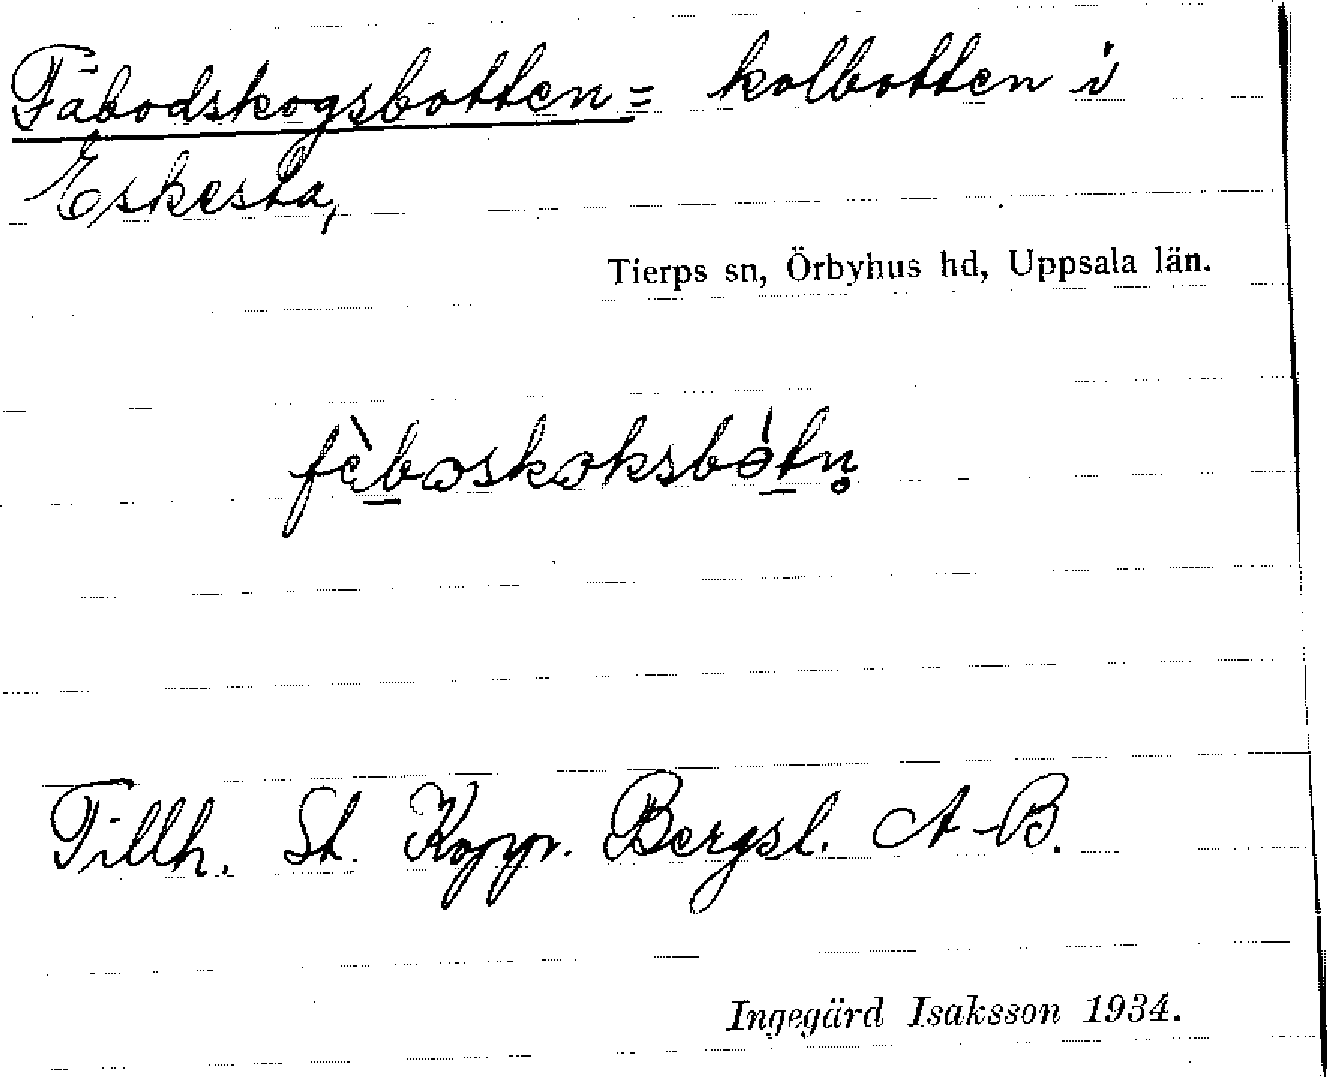 Fäbodskogsbotten = kolbotten i
Eskesta,
Tierps sn, Örbyhus hd, Uppsala län.
fèbɷskɷksbɵ́tn̥
Tillh. St. Kopp. Bergsl. A-B.
Ingegärd Isaksson 1934.